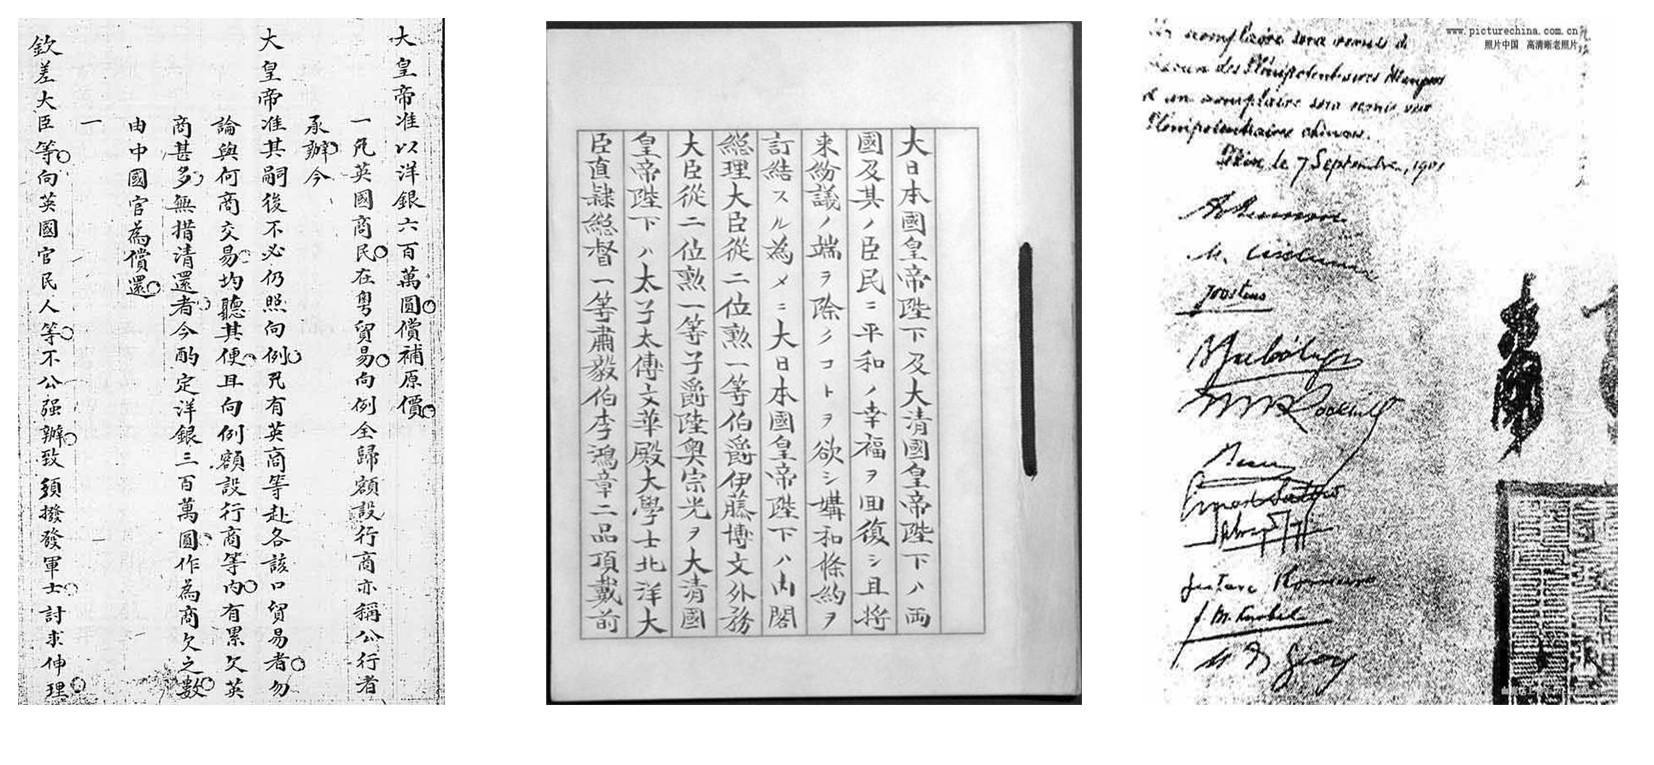 大皇帝准以洋銀六百萬圓償補原價
一凡英國商民在粵貿易向例全歸額設行商亦稱公行者
承辦今
大皇帝准其嗣後不必仍照向例凡有英商等赴各該口貿易者勿
論與何商交易均聽其便且向例額設行商等內有累欠英
商甚多無措清還者今酌定洋銀三百萬圓作為商欠之數
由中國官為償還
一
欽差大臣等向英國官民人等不公强辦致須撥發軍士討求伸理
大日本國皇帝陛下及大清國皇帝陛下ハ両
國及其ノ臣民ニ平和ノ幸福ヲ回復シ且將
來紛議ノ端ヲ除クコトヲ欲シ媾和條約ヲ
訂結スル為メニ大日本國皇帝陛下ハ内閣
総理大臣從二位勲一等伯爵伊藤博文外務
大臣從二位勲一等子爵陸奥宗光ヲ大清國
皇帝陛下ハ太子太傅文華殿大學士北洋大
臣直隷総督一等肅毅伯李鴻章二品頂戴前
www.picturechina.com.cn
照片中国 高清晰老照片
exemplaire sera remis à
des Plénipotentiaires étrangers
un exemplaire sera remis aux
Plénipotentiaires chinois.
Pékin, le 7 Septembre, 1901
Joostens
Ernest Satow
F. M. Knobel
M. de Giers